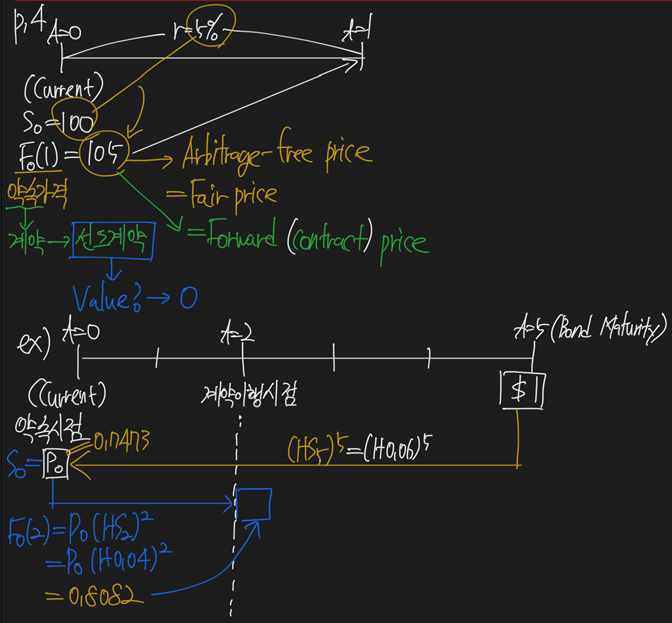 p,4 A=0 r=5% A=1
(Current)
S₀=100
F₀(1)=105 → Arbitrage-free price
약속가격 = Fair price
계약 → 선도계약 = Forward (contract) price
Value? → 0
ex) A=0 A=2 A=5 (Bond Maturity)
(Current) 계약이행시점 $1
약속시점
0.7473
S₀= P₀ (1+S₅)⁵=(1+0.06)⁵
F₀(2)=P₀(1+S₂)²
=P₀(1+0.04)²
=0.8082